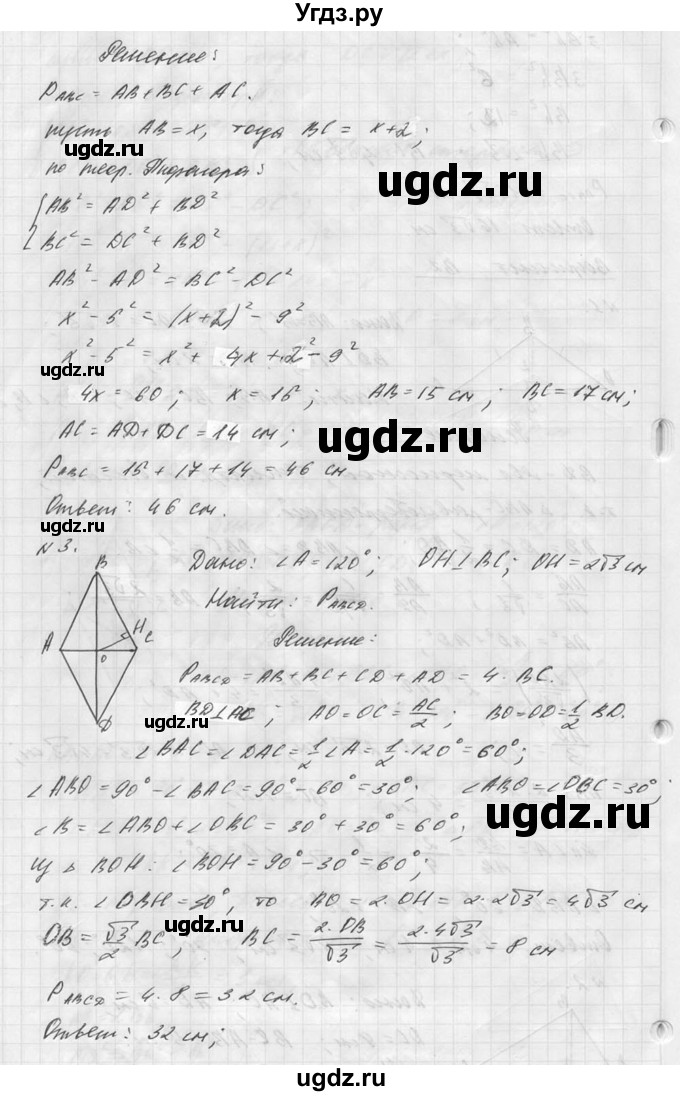 Угдз.ру
Решение:
P_ABC = AB + BC + AC.
пусть AB = x, тогда BC = x+2;
ugdz.ru
по теор. Пифагора:
ugdz.ru
{ AB² = AD² + BD²
{ BC² = DC² + BD²
AB² - AD² = BC² - DC²
x² - 5² = (x+2)² - 9²
ugdz.ru
x² - 5² = x² + 4x + 2² - 9²
4x = 60; x = 15; AB = 15 см; BC = 17 см;
AC = AD + DC = 14 см;
ugdz.ru
ugdz.ru
P_ABC = 15 + 17 + 14 = 46 см
Ответ: 46 см.
N 3.
Дано: ∠A = 120°; OH⊥BC; OH = 2√3 см
ugdz.ru
Найти: P_ABCD.
B
H
A
O
C
D
Решение:
P_ABCD = AB + BC + CD + AD = 4 · BC.
ugdz.ru
BD⊥AC; AO = OC = AC/2; BO = OD = 1/2 BD.
∠BAC = ∠DAC = 1/2 ∠A = 1/2 · 120° = 60°;
∠ABO = 90° - ∠BAC = 90° - 60° = 30°; ∠ABO = ∠OBC = 30°;
ugdz.ru
ugdz.ru
∠B = ∠ABO + ∠OBC = 30° + 30° = 60°;
Из Δ BOH: ∠BOH = 90° - 30° = 60°;
т.к. ∠OBH = 30°, то BO = 2 · OH = 2 · 2√3 = 4√3 см
ugdz.ru
OB = √3/2 BC; BC = 2·OB/√3 = 2·4√3/√3 = 8 см
P_ABCD = 4 · 8 = 32 см.
Ответ: 32 см;
ugdz.ru
ugdz.ru
ugdz.ru